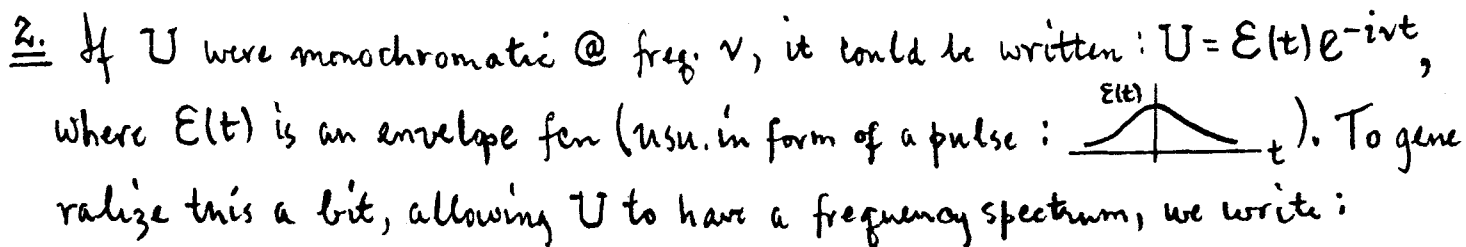 2. If U were monochromatic @ freq. ν, it could be written : U = ℰ(t) e^{-iνt},
where ℰ(t) is an envelope fcn (usu. in form of a pulse : ℰ(t) t ). To gene
ralize this a bit, allowing U to have a frequency spectrum, we write :